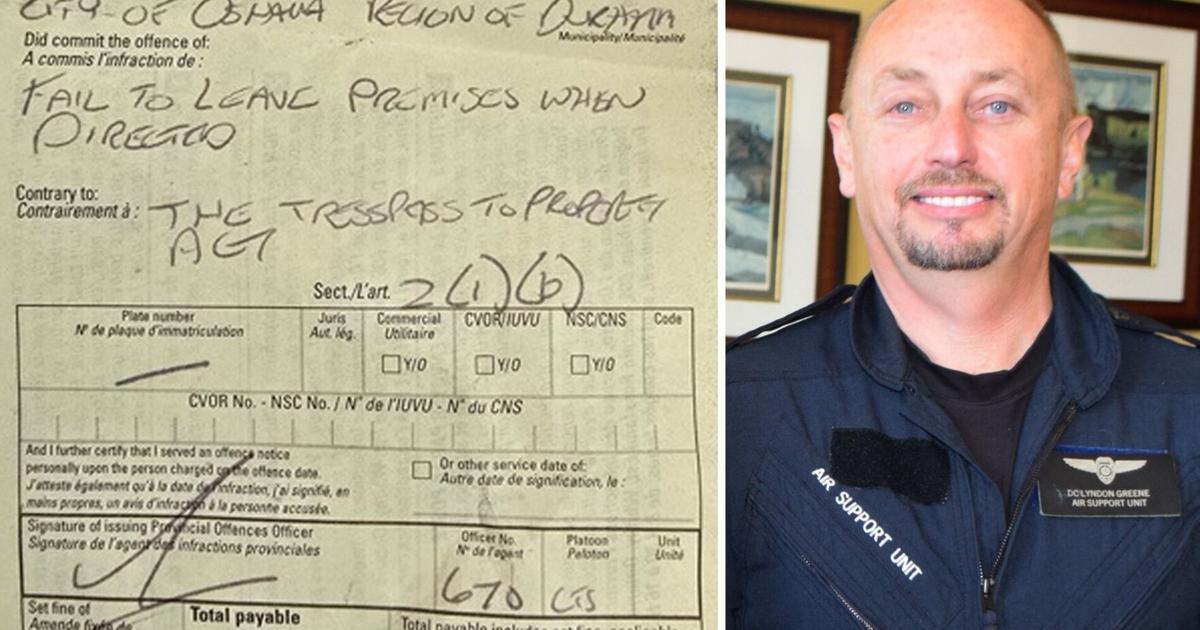 CITY OF OSHAWA REGION OF DURHAM
Municipality/Municipalité
Did commit the offence of:
A commis l'infraction de :
FAIL TO LEAVE PREMISES WHEN
DIRECTED
Contrary to:
Contrairement à :
THE TRESSPASS TO PROPERTY
ACT
Sect./L'art. 2(1)(b)
Plate number
N° de plaque d'immatriculation
Juris
Aut. lég.
Commercial
Utilitaire
Y/O
CVOR/IUVU
Y/O
NSC/CNS
Y/O
Code
CVOR No. - NSC No. / N° de l'IUVU - N° du CNS
And I further certify that I served an offence notice
personally upon the person charged on the offence date.
J'atteste également qu'à la date de l'infraction, j'ai signifié, en
mains propres, un avis d'infraction à la personne accusée.
Or other service date of:
Autre date de signification, le :
Signature of issuing Provincial Offences Officer
Signature de l'agent des infractions provinciales
Officer No.
N° de l'agent
670
Platoon
Peloton
CTS
Unit
Unité
Set fine of
Amende fixée de
Total payable
Total payable includes set fine, applicable
AIR SUPPORT UNIT
DC LYNDON GREENE
AIR SUPPORT UNIT